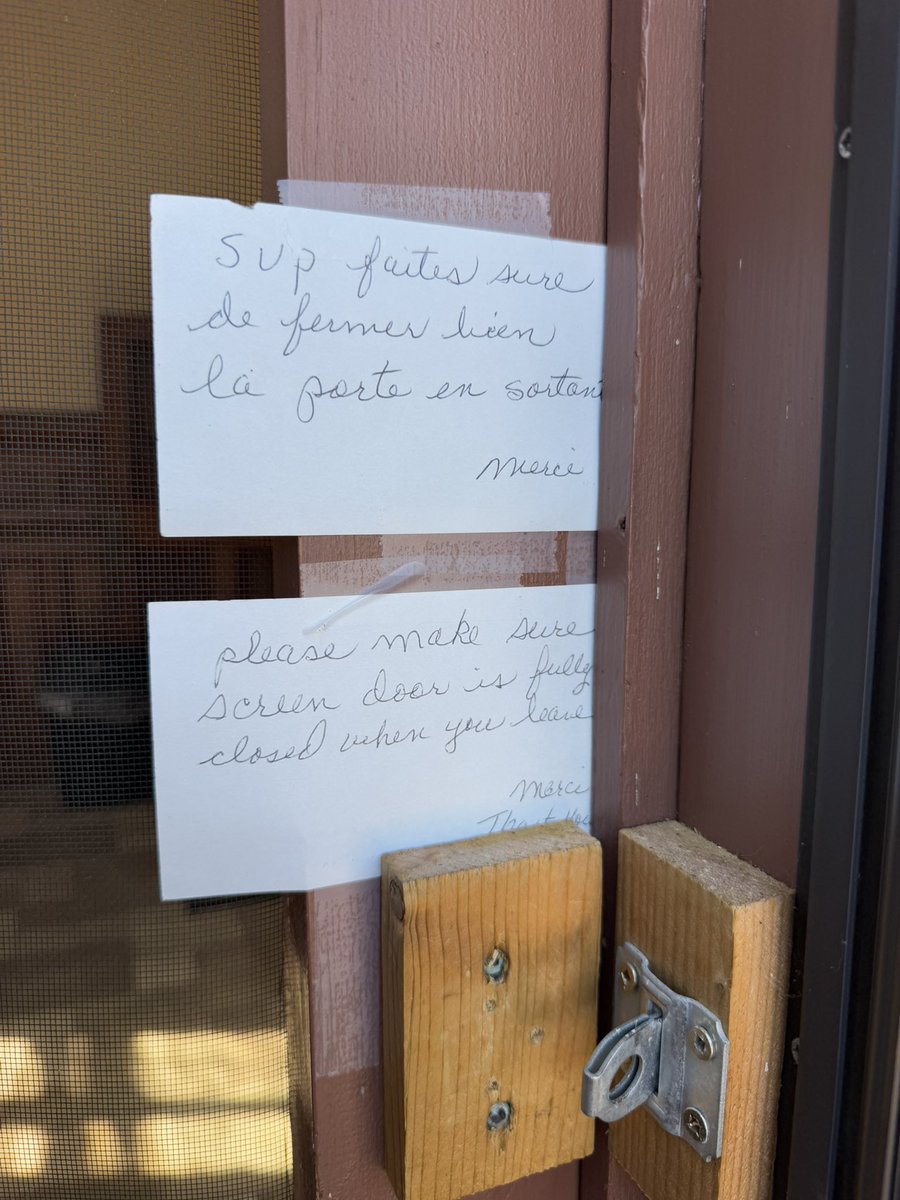 SVP faites sure
de fermer bien
la porte en sortant
merci
please make sure
screen door is fully
closed when you leave
merci
Thank You